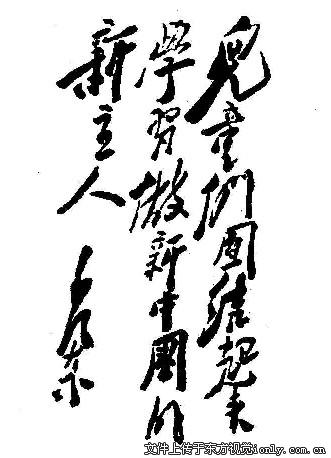 兒童们團結起来
學習做新中國的
新主人
毛泽东
文件上传于东方视觉ionly.com.cn